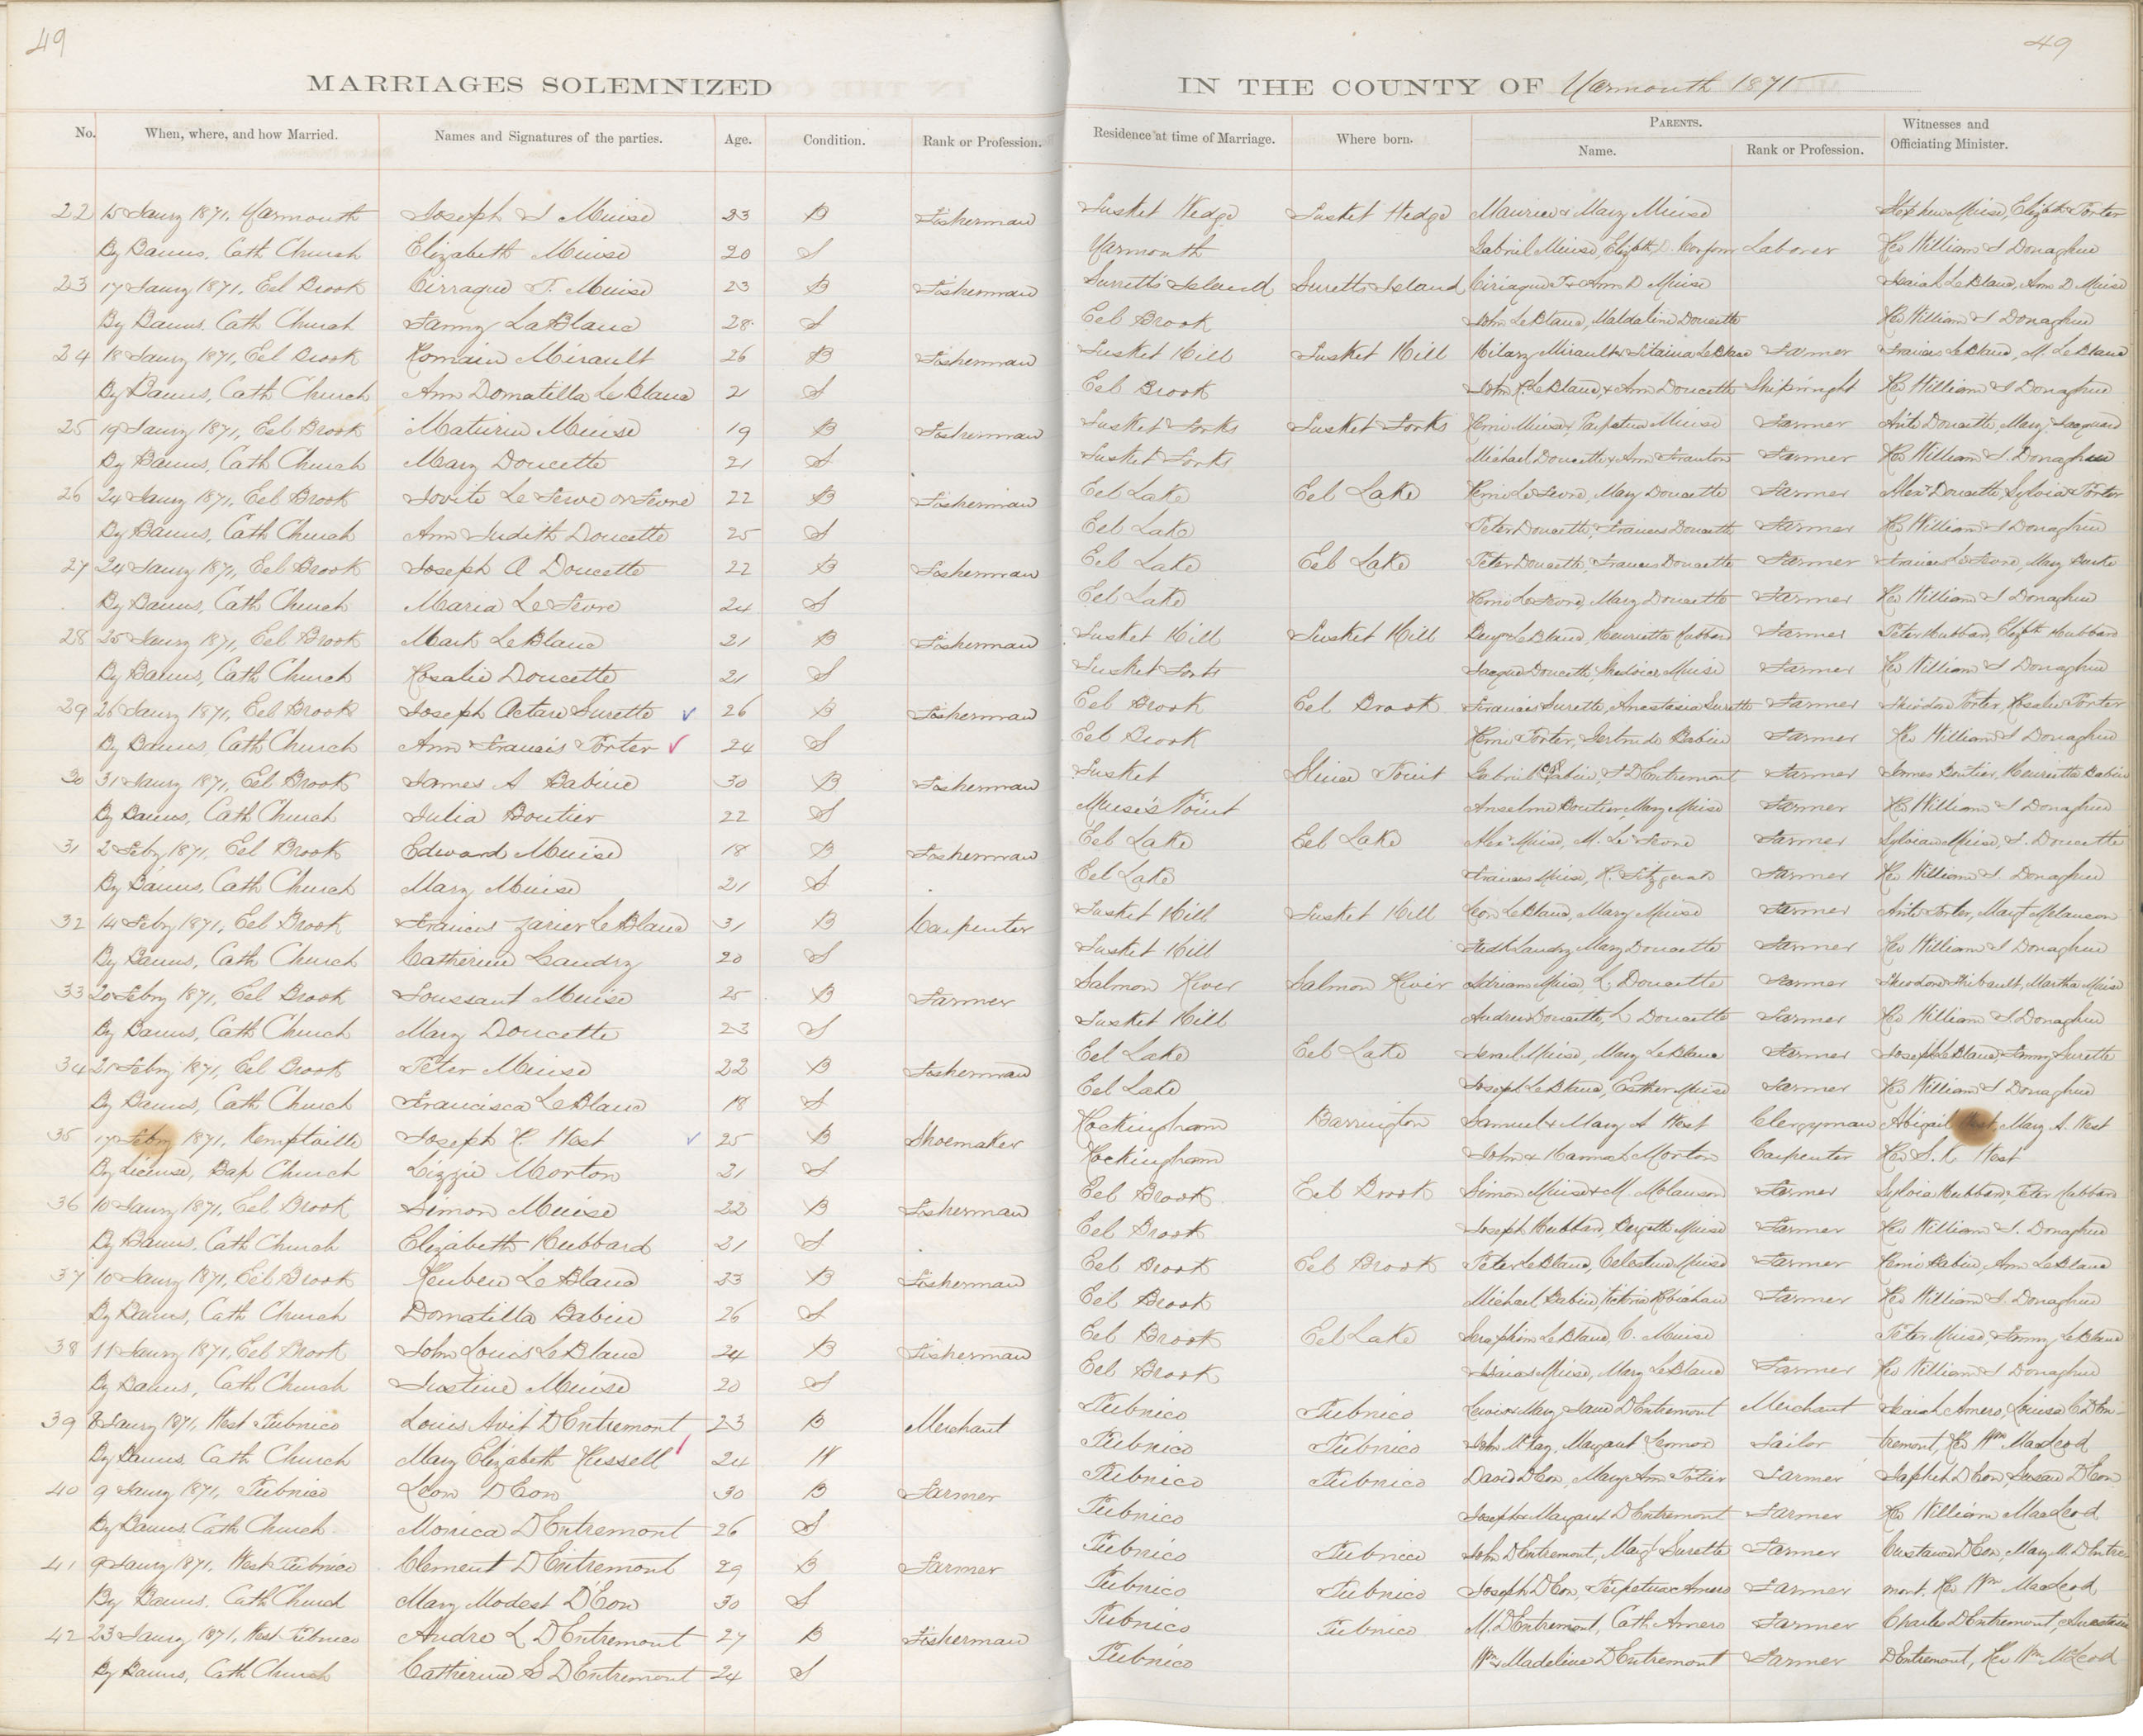 49
49
MARRIAGES SOLEMNIZED IN THE COUNTY OF Yarmouth 1871
No. When, where, and how Married. Names and Signatures of the parties. Age. Condition. Rank or Profession. Residence at time of Marriage. Where born. PARENTS. Name. Rank or Profession. Witnesses and Officiating Minister.
22 15 Jaury 1871, Yarmouth Joseph S Muise 23 B Fisherman Tusket Wedge Tusket Wedge Maurice & Mary Muise Stephen Muise, Elizabeth Porter
By Banns, Cath Church Elizabeth Muise 20 S Yarmouth Gabriel Muise, Laborer Rev William I Donaghue
23 17 Jaury 1871, Eel Brook Cirraque T. Muise 23 B Fisherman Surretts Island Suretts Island Ciriaque T & Ann D Muise Isaiah LeBlanc, Ann D Muise
By Banns, Cath Church Fanny LaBlanc 28 S Eel Brook John LeBlanc, Maldaline Doucette Rev William I Donaghue
24 18 Jaury 1871, Eel Brook Romain Mirault 26 B Fisherman Tusket Hill Tusket Hill Hilary Mirault & LeBlanc Farmer Francis LeBlanc, M. LeBlanc
By Banns, Cath Church Ann Domatilla LeBlanc 21 S Eel Brook John R. LeBlanc & Ann Doucette Shipwright Rev William I Donaghue
25 19 Jaury 1871, Eel Brook Maturin Muise 19 B Fisherman Tusket Forks Tusket Forks Remi Muise & Perpetua Muise Farmer Doucette, Mary Jacquard
By Banns, Cath Church Mary Doucette 21 S Tusket Forks Michael Doucette & Ann Farmer Rev William I. Donaghue
26 24 Jaury 1871, Eel Brook Jovite Le Ferve or Fevre 22 B Fisherman Eel Lake Eel Lake Remi LeFevre, Mary Doucette Farmer Alexr Doucette, Sylvia Porter
By Banns, Cath Church Ann Judith Doucette 25 S Eel Lake Peter Doucette, Frances Doucette Farmer Rev William I Donaghue
27 24 Jaury 1871, Eel Brook Joseph A Doucette 22 B Fisherman Eel Lake Eel Lake Peter Doucette, Frances Doucette Farmer Francis LeFevre, Mary Burke
By Banns, Cath Church Maria LeFevre 24 S Eel Lake Remi LeFevre, Mary Doucette Farmer Rev William I Donaghue
28 25 Jaury 1871, Eel Brook Mark LeBlanc 21 B Fisherman Tusket Hill Tusket Hill Benj LeBlanc, Henrietta Hubbard Farmer Peter Hubbard, Elizth Hubbard
By Banns, Cath Church Rosalie Doucette 21 S Tusket Forks Jacque Doucette, Muise Farmer Rev William I Donaghue
29 26 Jaury 1871, Eel Brook Joseph Actare Surette 26 B Fisherman Eel Brook Eel Brook Francis Surette, Anastasia Surette Farmer Theodore Porter, Rosalie Porter
By Banns, Cath Church Ann Francis Porter 24 S Eel Brook Remi Porter, Gertrude Babin Farmer Rev William I Donaghue
30 31 Jaury 1871, Eel Brook James A Babine 30 B Fisherman Tusket Point Gabriel Babin, D'Entremont Farmer James Boutier, Henrietta Babin
By Banns, Cath Church Julia Boutier 22 S Muise's Point Anselm Boutier, Mary Muise Farmer Rev William I Donaghue
31 2 Feby 1871, Eel Brook Edward Muise 18 B Fisherman Eel Lake Eel Lake Alexr Muise, M. LeFevre Farmer Sylvian Muise, S. Doucette
By Banns, Cath Church Mary Muise 21 S Eel Lake Francis Muise, R. Fitzgerald Farmer Rev William I. Donaghue
32 14 Feby 1871, Eel Brook Francis Zavier LeBlanc 31 B Carpenter Tusket Hill Tusket Hill Leon LeBlanc, Mary Muise Farmer Porter, Margt Melancon
By Banns, Cath Church Catherine Landry 20 S Tusket Hill Landry, Mary Doucette Farmer Rev William I Donaghue
33 20 Febry 1871, Eel Brook Toussaint Muise 25 B Farmer Salmon River Salmon River Adrian Muise, L. Doucette Farmer Theodore Thibault, Martha Muise
By Banns, Cath Church Mary Doucette 23 S Tusket Hill Andrew Doucette, L Doucette Farmer Rev William I. Donaghue
34 21 Febry 1871, Eel Brook Peter Muise 22 B Fisherman Eel Lake Eel Lake Israel Muise, Mary LeBlanc Farmer Joseph LeBlanc, Fanny Surette
By Banns, Cath Church Francisca LeBlanc 18 S Eel Lake Joseph LeBlanc, Esther Muise Farmer Rev William I Donaghue
35 17 Febry 1871, Kemptville Joseph H. West 25 B Shoemaker Rockingham Barrington Samuel & Mary A West Clergyman Abigail West, Mary A. West
By License, Bap Church Lizzie Morton 21 S Rockingham John & Hannah Morton Carpenter Rev S. West
36 10 Jaury 1871, Eel Brook Simon Muise 22 B Fisherman Eel Brook Eel Brook Simon Muise & M. Melanson Farmer Sylvia Hubbard, Peter Hubbard
By Banns, Cath Church Elizabeth Hubbard 21 S Eel Brook Joseph Hubbard, Muise Farmer Rev William I. Donaghue
37 10 Jaury 1871, Eel Brook Reuben LeBlanc 23 B Fisherman Eel Brook Eel Brook Peter LeBlanc, Celestine Muise Farmer Remi Babin, Ann LeBlanc
By Banns, Cath Church Domatilla Babin 26 S Eel Brook Michael Babin, Victoria Farmer Rev William I. Donaghue
38 11 Jaury 1871, Eel Brook John Louis LeBlanc 24 B Fisherman Eel Brook Eel Lake Seraphim LeBlanc, C. Muise Peter Muise, Fanny LeBlanc
By Banns, Cath Church Justine Muise 20 S Eel Brook Isaias Muise, Mary LeBlanc Farmer Rev William I Donaghue
39 8 Jaury 1871, West Pubnico Louis Avit D'Entremont 23 B Merchant Pubnico Pubnico Lewis & Mary Jane D'Entremont Merchant Isaiah Amero, Louisa C D'En-
By Banns, Cath Church Mary Elizabeth Russell 24 W Pubnico Pubnico John McKay, Margaret Sailor tremont, Rev Wm MacLeod
40 9 Jaury 1871, Pubnico Leon D'Eon 30 B Farmer Pubnico Pubnico David D'Eon, Mary Ann Potier Farmer Japhet D'Eon, Susan D'Eon
By Banns, Cath Church Monica D'Entremont 26 S Pubnico Joseph & Margaret D'Entremont Farmer Rev William MacLeod
41 9 Jaury 1871, West Pubnico Clement D'Entremont 29 B Farmer Pubnico Pubnico John D'Entremont, Margt Surette Farmer Custance D'Eon, Mary M. D'Entre-
By Banns, Cath Church Mary Modest D'Eon 30 S Pubnico Pubnico Joseph D'Eon, Perpetua Amero Farmer mont, Rev Wm MacLeod
42 23 Jaury 1871, West Pubnico Andre L D'Entremont 27 B Fisherman Pubnico Pubnico M. D'Entremont, Cath Amero Farmer Charles D'Entremont,
By Banns, Cath Church Catherine S D'Entremont 24 S Pubnico Wm & Madeline D'Entremont Farmer D'Entremont, Rev Wm McLeod